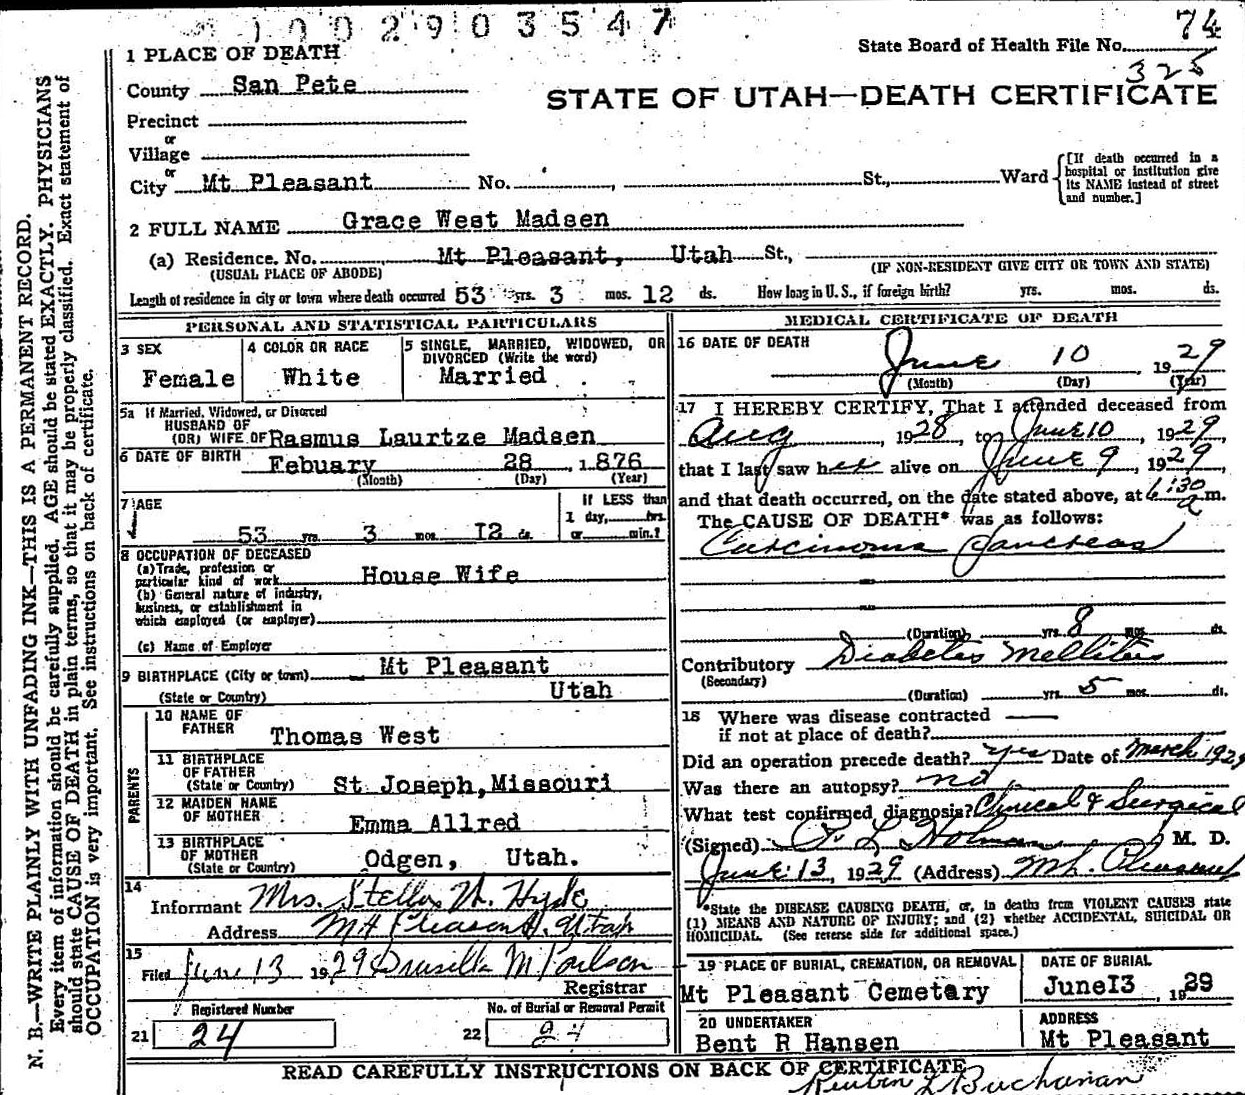 1002903547
74
State Board of Health File No.
325
1 PLACE OF DEATH
County San Pete
STATE OF UTAH—DEATH CERTIFICATE
Precinct
or
Village
or
City Mt Pleasant No. , St., Ward
[If death occurred in a hospital or institution give its NAME instead of street and number.]
2 FULL NAME Grace West Madsen
(a) Residence. No. , Mt Pleasant, Utah St.,
(USUAL PLACE OF ABODE) (IF NON-RESIDENT GIVE CITY OR TOWN AND STATE)
Length of residence in city or town where death occurred 53 yrs. 3 mos. 12 ds. How long in U. S., if foreign birth? yrs. mos. ds.
PERSONAL AND STATISTICAL PARTICULARS
3 SEX
Female
4 COLOR OR RACE
White
5 SINGLE, MARRIED, WIDOWED, OR DIVORCED (Write the word)
Married
5a If Married, Widowed, or Divorced
HUSBAND OF
(OR) WIFE OF Rasmus Laurtze Madsen
6 DATE OF BIRTH Febuary 28 , 1876
(Month) (Day) (Year)
7 AGE
53 yrs. 3 mos. I2 ds.
If LESS than
1 day, hrs.
or min.?
8 OCCUPATION OF DECEASED
(a) Trade, profession or
particular kind of work House Wife
(b) General nature of industry,
business, or establishment in
which employed (or employer)
(c) Name of Employer
9 BIRTHPLACE (City or town) Mt Pleasant
(State or Country) Utah
PARENTS
10 NAME OF
FATHER Thomas West
11 BIRTHPLACE
OF FATHER
(State or Country) St Joseph, Missouri
12 MAIDEN NAME
OF MOTHER Emma Allred
13 BIRTHPLACE
OF MOTHER
(State or Country) Odgen, Utah.
14
Informant Mrs. Stella M. Hyde
Address Mt Pleasant, Utah
15
Filed June 13 1929 Drusilla M
Registrar
Registered Number
21 24
No. of Burial or Removal Permit
22 24
MEDICAL CERTIFICATE OF DEATH
16 DATE OF DEATH
June 10 , 1929
(Month) (Day) (Year)
17 I HEREBY CERTIFY, That I attended deceased from
Aug , 1928, to June 10 , 1929
that I last saw her alive on June 9 , 1929,
and that death occurred, on the date stated above, at 6:30 a m.
The CAUSE OF DEATH* was as follows:
Carcinoma Pancreas
(Duration) yrs. 8 mos. ds.
Contributory Diabetes Mellitus
(Secondary)
(Duration) yrs. 5 mos. ds.
18 Where was disease contracted
if not at place of death?
Did an operation precede death? yes Date of March 1929
Was there an autopsy? no
What test confirmed diagnosis? Clinical & Surgical
(Signed) L Holman M. D.
June 13, 1929 (Address) Mt. Pleasant
*State the DISEASE CAUSING DEATH, or, in deaths from VIOLENT CAUSES state
(1) MEANS AND NATURE OF INJURY; and (2) whether ACCIDENTAL, SUICIDAL OR
HOMICIDAL. (See reverse side for additional space.)
19 PLACE OF BURIAL, CREMATION, OR REMOVAL
Mt Pleasant Cemetary
DATE OF BURIAL
June I3 , 1929
20 UNDERTAKER
Bent R Hansen
ADDRESS
Mt Pleasant
READ CAREFULLY INSTRUCTIONS ON BACK OF CERTIFICATE
Reuben L Buchanan
N. B.—WRITE PLAINLY WITH UNFADING INK—THIS IS A PERMANENT RECORD.
Every item of information should be carefully supplied. AGE should be stated EXACTLY. PHYSICIANS
should state CAUSE OF DEATH in plain terms, so that it may be properly classified. Exact statement of
OCCUPATION is very important. See instructions on back of certificate.